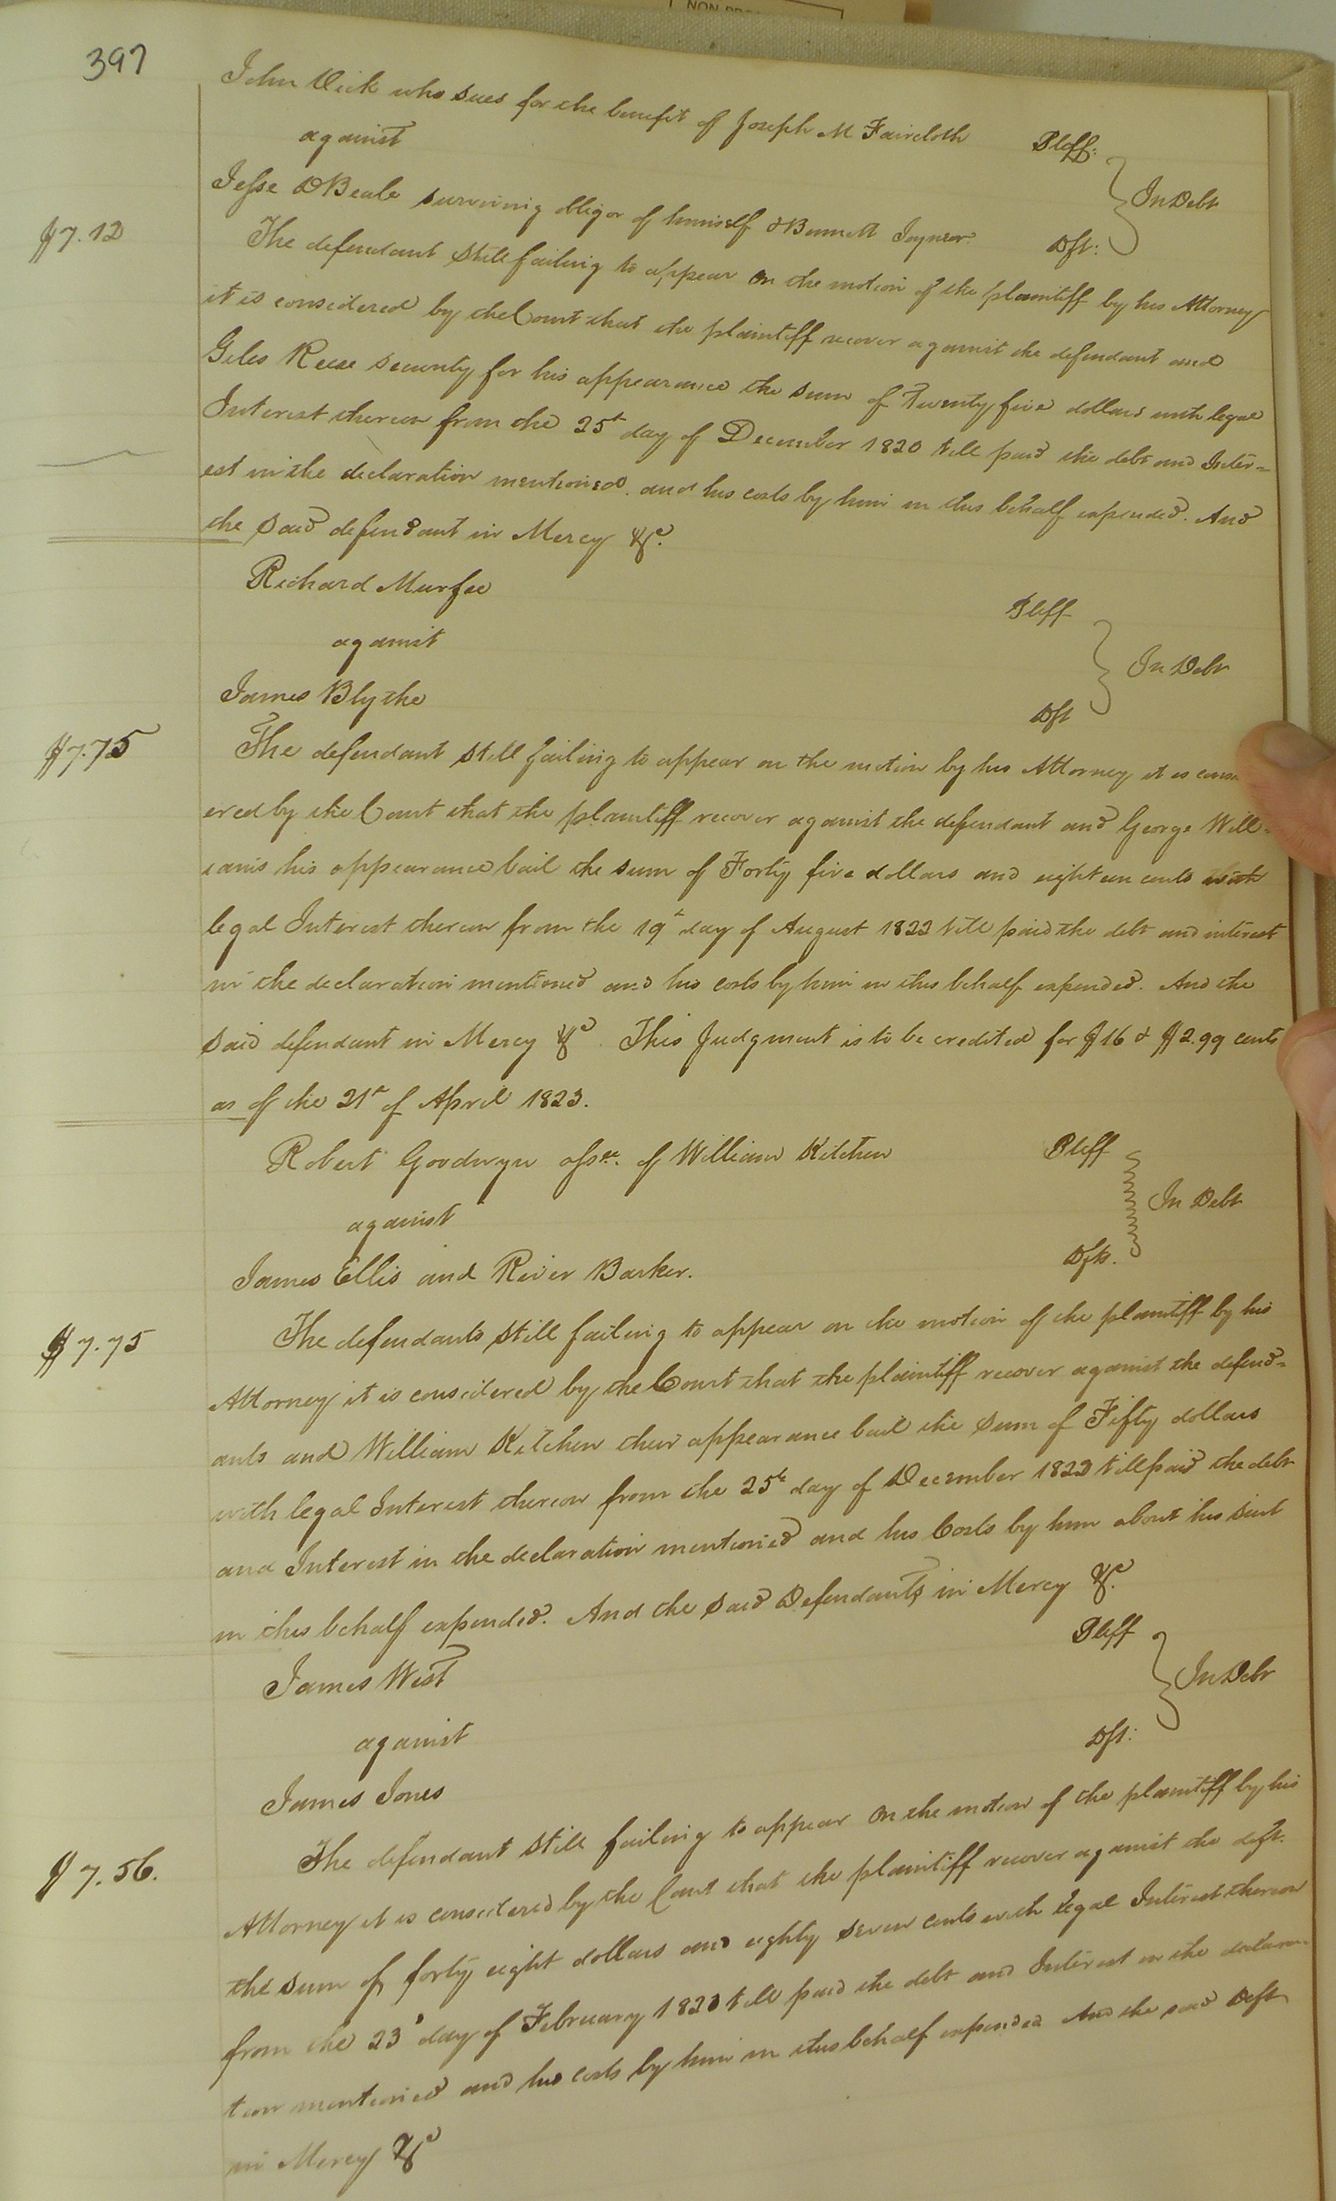 NON-PRO
397
John Dick who sues for the benefit of Joseph M Faircloth Pleff:
against
In Debt
Jesse D Beale surviving obligor of himself & Bennett Joyner Dft:
$7.12
The defendant still failing to appear on the motion of the plaintiff by his Attorney
it is considered by the Court that the plaintiff recover against the defendant and
Giles Reese security for his appearance the sum of Twenty five dollars with legal
Interest thereon from the 25t day of December 1820 till paid the debt and Inter=
est in the declaration mentioned. and his costs by him in this behalf expended. And
the said defendant in Mercy &c.
Richard Murfee Pleff
against
In Debt
James Blythe Dft
$7.75
The defendant still failing to appear on the motion by his Attorney it is cons
ered by the Court that the plaintiff recover against the defendant and George Will=
iams his appearance bail the sum of Forty five dollars and eighteen cents with
legal Interest thereon from the 19t day of August 1822 till paid the debt and interest
in the declaration mentioned and his costs by him in this behalf expended. And the
said defendant in Mercy &c. This Judgment is to be credited for $16 & $2.99 cents
as of the 21t of April 1823.
Robert Goodwyn assee. of William Kitchen Pleff
against
In Debt
James Ellis and River Barker. Dfts.
$7.75
The defendants still failing to appear on the motion of the plaintiff by his
Attorney it is considered by the Court that the plaintiff recover against the defend=
ants and William Kitchen their appearance bail the sum of Fifty dollars
with legal Interest thereon from the 25t day of December 1822 till paid the debt
and Interest in the declaration mentioned and his Costs by him about his suit
in this behalf expended. And the said Defendants in Mercy &c.
James West Pleff
against
In Debt
James Jones Dft:
$7.56.
The defendant still failing to appear on the motion of the plaintiff by his
Attorney it is considered by the Court that the plaintiff recover against the deft.
the sum of forty eight dollars and eighty seven cents with legal Interest thereon
from the 23d day of February 1823 till paid the debt and Interest in the declara=
tion mentioned and his costs by him in this behalf expended And the said Deft
in Mercy &c